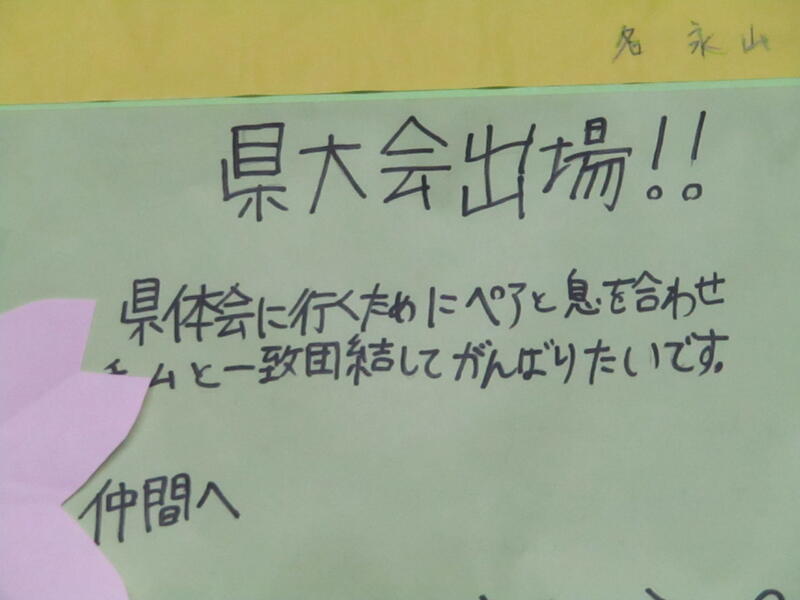 名 永山
県大会出場!!
県体会に行くためにペアと息を合わせ
チームと一致団結してがんばりたいです。
仲間へ